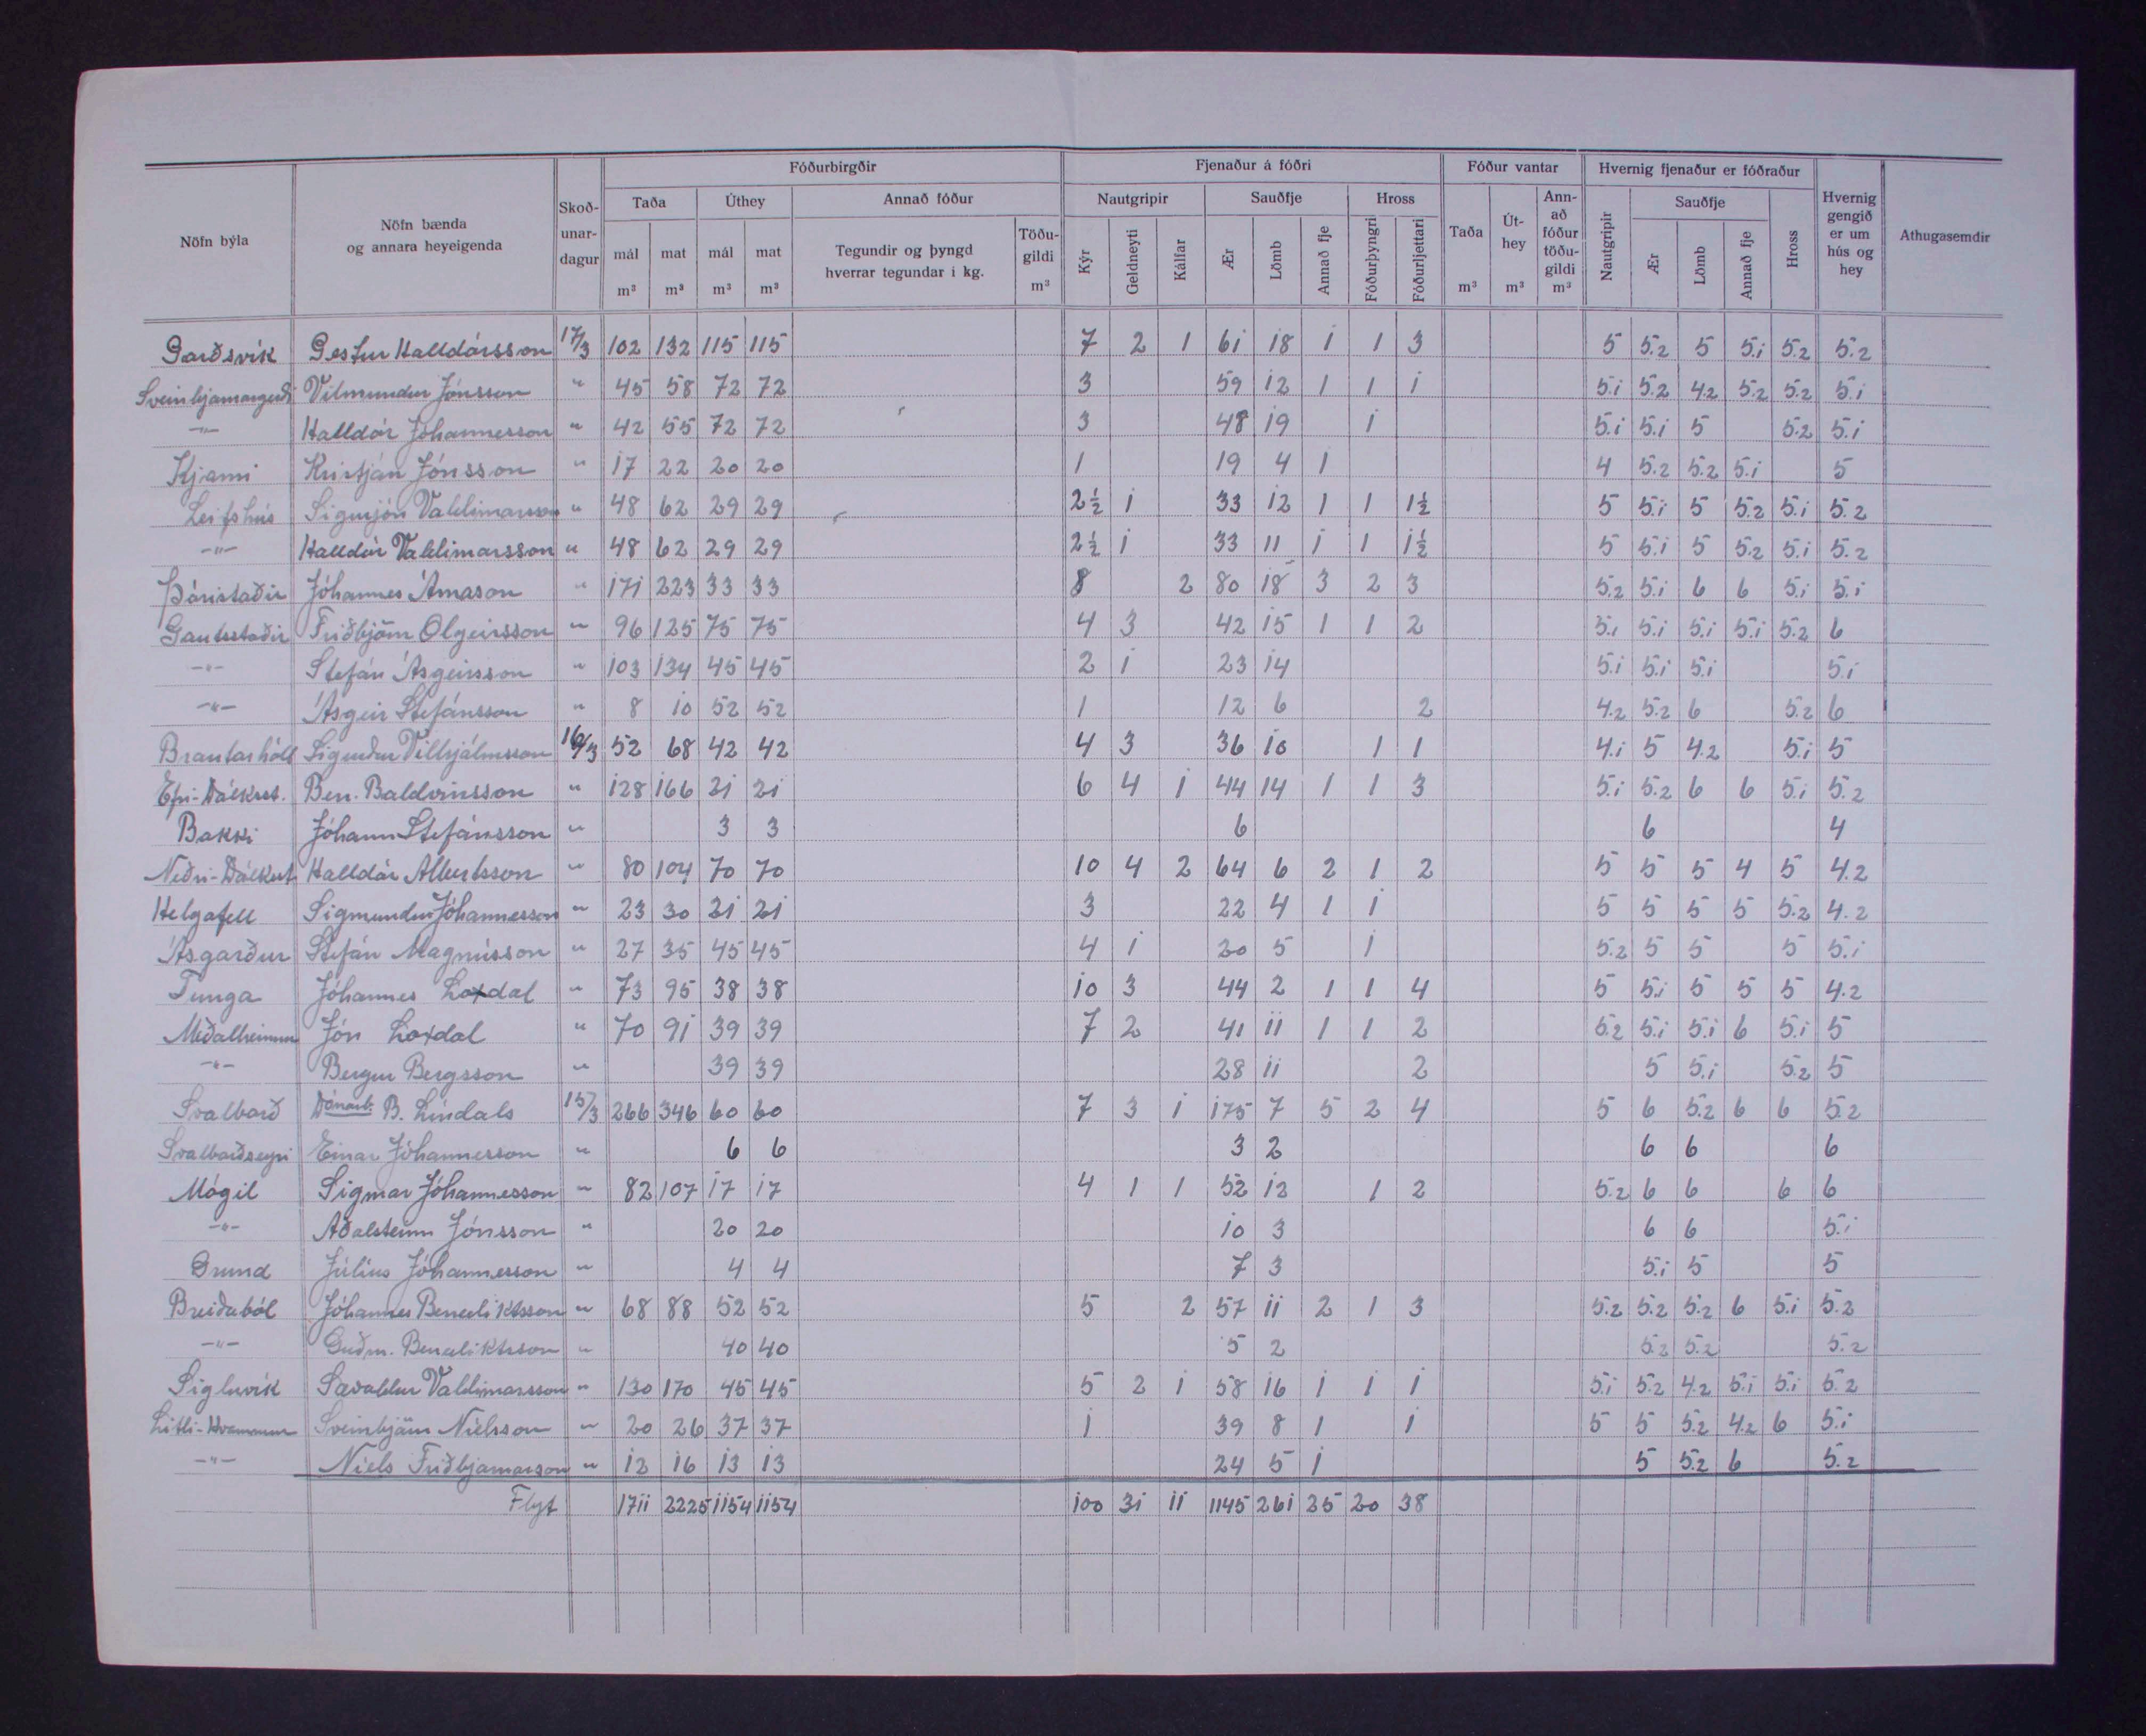 Fóðurbirgðir Fjenaður á fóðri Fóður vantar Hvernig fjenaður er fóðraður
Nöfn býla Nöfn bænda og annara heyeigenda Skoð-unar-dagur Taða Úthey Annað fóður Nautgripir Sauðfje Hross Taða m³ Út-hey m³ Ann-að fóður töðu-gildi m³ Nautgripir Sauðfje Hross Hvernig gengið er um hús og hey Athugasemdir
mál m³ mat m³ mál m³ mat m³ Tegundir og þyngd hverrar tegundar í kg. Töðu-gildi m³ Kýr Geldneyti Kálfar Ær Lömb Annað fje Fóðurþyngri Fóðurljettari Ær Lömb Annað fje
Garðsvík Gestur Halldórsson 17/3 102 132 115 115 7 2 1 61 18 1 1 3 5 5.2 5 5.1 5.2 5.2
Sveinbjarnargerði Vilmundur Jónsson " 45 58 72 72 3 59 12 1 1 1 5.1 5.2 4.2 5.2 5.2 5.1
-"- Halldór Jóhannesson " 42 55 72 72 3 48 19 1 5.1 5.1 5 5.2 5.1
Kjarni Kristján Jónsson " 17 22 20 20 1 19 4 1 4 5.2 5.2 5.1 5
Leifshús Sigurjón Valdimarsson " 48 62 29 29 2½ 1 33 12 1 1 1½ 5 5.1 5 5.2 5.1 5.2
-"- Halldór Valdimarsson " 48 62 29 29 2½ 1 33 11 1 1 1½ 5 5.1 5 5.2 5.1 5.2
Þórisstaðir Jóhannes Árnason " 171 223 33 33 8 2 80 18 3 2 3 5.2 5.1 6 6 5.1 5.1
Gautsstaðir Friðbjörn Olgeirsson " 96 125 75 75 4 3 42 15 1 1 2 5.1 5.1 5.1 5.1 5.2 6
-"- Stefán Ásgeirsson " 103 134 45 45 2 1 23 14 5.1 5.1 5.1 5.1
-"- Ásgeir Stefánsson " 8 10 52 52 1 12 6 2 4.2 5.2 6 5.2 6
Brautarhóll Sigurður Vilhjálmsson 16/3 52 68 42 42 4 3 36 10 1 1 4.1 5 4.2 5.1 5
Efri-Dálksst. Ben. Baldvinsson " 128 166 21 21 6 4 1 44 14 1 1 3 5.1 5.2 6 6 5.1 5.2
Bakki Jóhann Stefánsson " 3 3 6 6 4
Neðri-Dálksst. Halldór Albertsson " 80 104 70 70 10 4 2 64 6 2 1 2 5 5 5 4 5 4.2
Helgafell Sigmundur Jóhannesson " 23 30 21 21 3 22 4 1 1 5 5 5 5 5.2 4.2
Ásgarður Stefán Magnússon " 27 35 45 45 4 1 20 5 1 5.2 5 5 5 5.1
Tunga Jóhannes Laxdal " 73 95 38 38 10 3 44 2 1 1 4 5 5.1 5 5 5 4.2
Meðalheimur Jón Laxdal " 70 91 39 39 7 2 41 11 1 1 2 5.2 5.1 5.1 6 5.1 5
-"- Bergur Bergsson " 39 39 28 11 2 5 5.1 5.2 5
Svalbarð Dánarb. B. Líndals 15/3 266 346 60 60 7 3 1 175 7 5 2 4 5 6 5.2 6 6 5.2
Svalbarðseyri Einar Jóhannesson " 6 6 3 2 6 6 6
Mógil Sigmar Jóhannesson " 82 107 17 17 4 1 1 52 12 1 2 5.2 6 6 6 6
-"- Aðalsteinn Jónsson " 20 20 10 3 6 6 5.1
Grund Júlíus Jóhannesson " 4 4 7 3 5.1 5 5
Breiðaból Jóhannes Benediktsson " 68 88 52 52 5 2 57 11 2 1 3 5.2 5.2 5.2 6 5.1 5.2
-"- Guðm. Benediktsson " 40 40 5 2 5.2 5.2 5.2
Sigluvík Sævaldur Valdimarsson " 130 170 45 45 5 2 1 58 16 1 1 1 5.1 5.2 4.2 5.1 5.1 5.2
Litli-Hvammur Sveinbjörn Níelsson " 20 26 37 37 1 39 8 1 1 5 5 5.2 4.2 6 5.1
-"- Níels Friðbjarnarson " 12 16 13 13 24 5 1 5 5.2 6 5.2
Flyt 1711 2225 1154 1154 100 31 11 1145 261 25 20 38